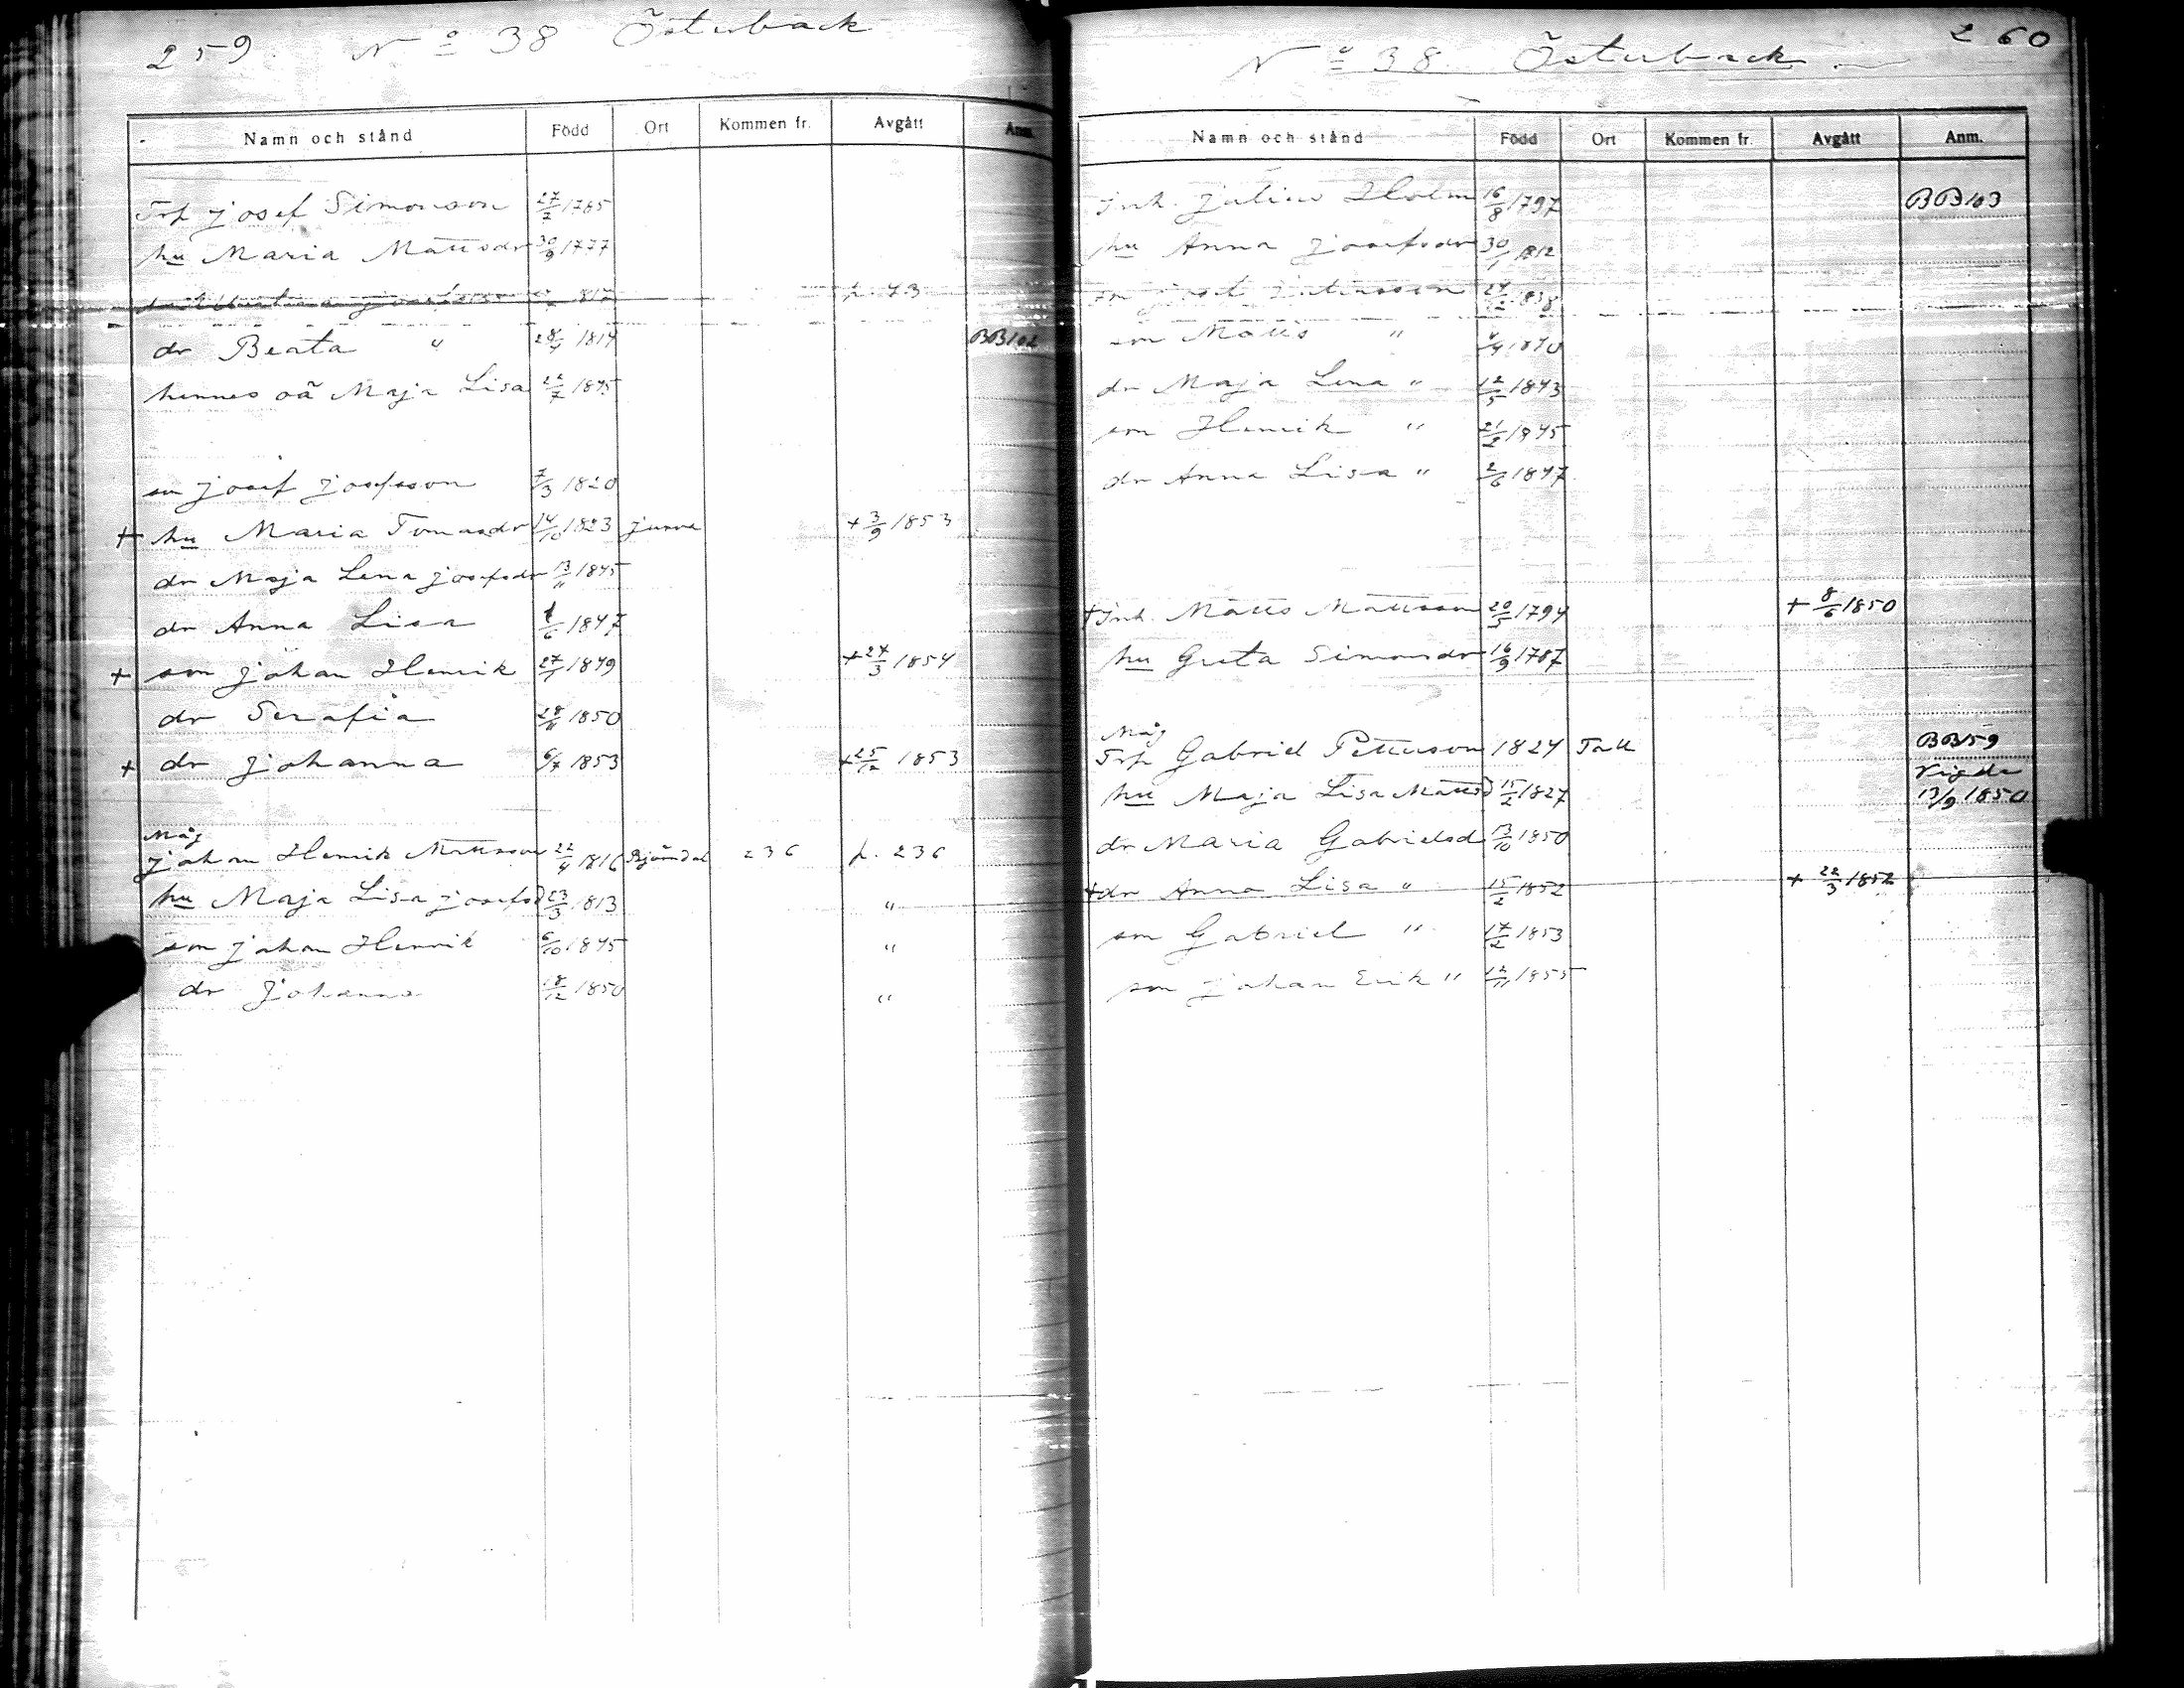 259. No 38 Österback
Namn och stånd Född Ort Kommen fr. Avgått Anm.
Trp Josef Simonson 27/7 1785
hu Maria Mattsdr 30/9 1777
1817 p. 73
dr Beata " 28/4 1814 BB102
hennes oä Maja Lisa 22/7 1845
son Josef Josefsson 7/3 1820
+ hu Maria Tomasdr 14/10 1823 Jurva + 3/9 1853
dr Maja Lena Josefsdr 13/11 1845
dr Anna Lisa /6 1847
+ son Johan Henrik 27/1 1849 + 24/3 1854
dr Serafia 28/11 1850
+ dr Johanna 6/7 1853 + 25/12 1853
Måg
Johan Henrik Mattsson 22/4 1816 Björndal 236 p. 236
hu Maja Lisa Josefsd 23/3 1813 "
son Johan Henrik 6/10 1845 "
dr Johanna 18/12 1850 "
No 38 Österback 260
Namn och stånd Född Ort Kommen fr. Avgått Anm.
Inh. Julius Holm 16/8 1797 BB103
hu Anna Josefsdr 30/1 1812
son Josef Juliusson 24/2 1838
son Matts " /4 1840
dr Maja Lena " 12/5 1843
son Henrik " 21/2 1845
dr Anna Lisa " 2/6 1847
+ Inh. Matts Mattsson 20/5 1794 + 8/6 1850
hu Greta Simonsdr 16/9 1787
Måg
Trp Gabriel Petterson 1824 Tall BB159
hu Maja Lisa Mattsd 15/2 1827 Vigda 13/9 1850
dr Maria Gabrielsd 13/10 1850
+ dr Anna Lisa " 15/2 1852 + 22/3 1852
son Gabriel " 17/2 1853
son Johan Erik " 12/11 1855